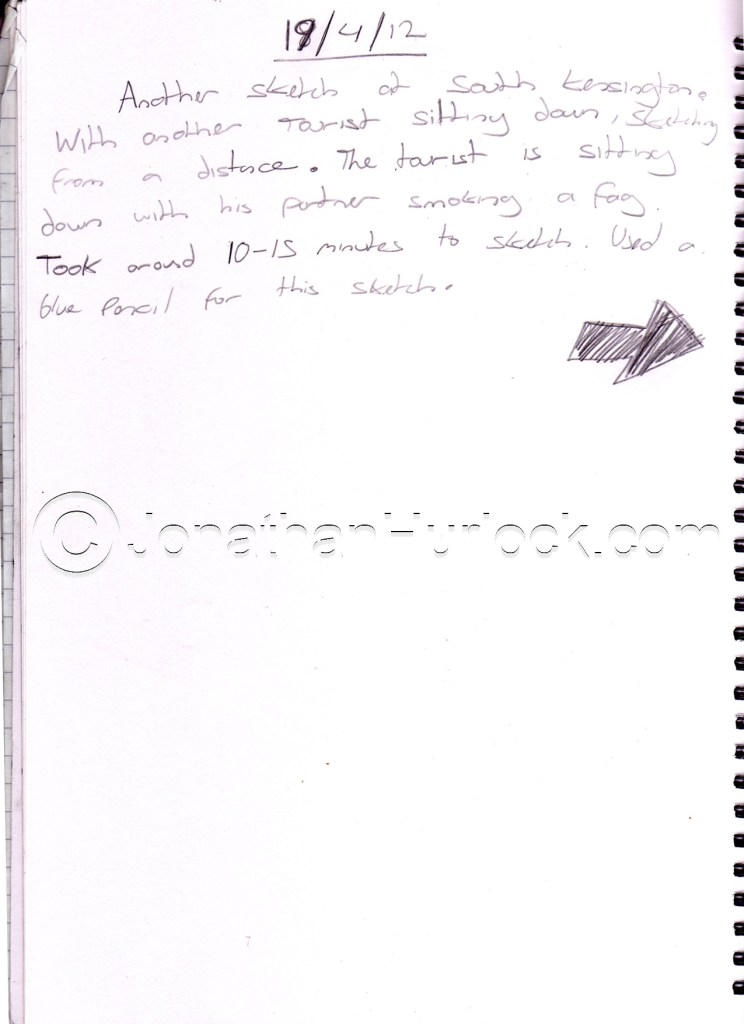 19/4/12
Another sketch at South Kensington.
With another tourist sitting down, sketching
from a distance. The tourist is sitting
down with his partner smoking a fag.
Took around 10-15 minutes to sketch. Used a
blue pencil for this sketch.
© JonathanHurlock.com